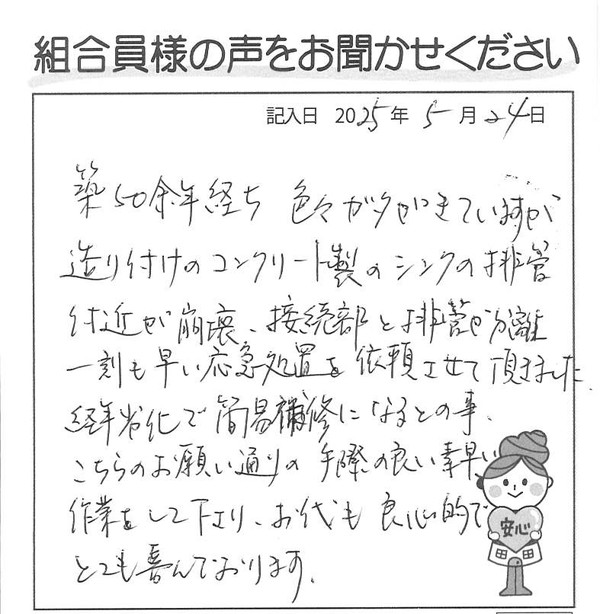 組合員様の声をお聞かせください
記入日 2025年 5月 24日
築50余年経ち 色々ガタがきていますが
造り付けのコンクリート製のシンクの排管
付近が崩壊、接続部と排管が分離
一刻も早い応急処置を依頼させて頂きました
経年劣化で簡易補修になるとの事、
こちらのお願い通りの手際の良い素早い
作業をして下さり、お代も良心的で
とても喜んでおります。
安心